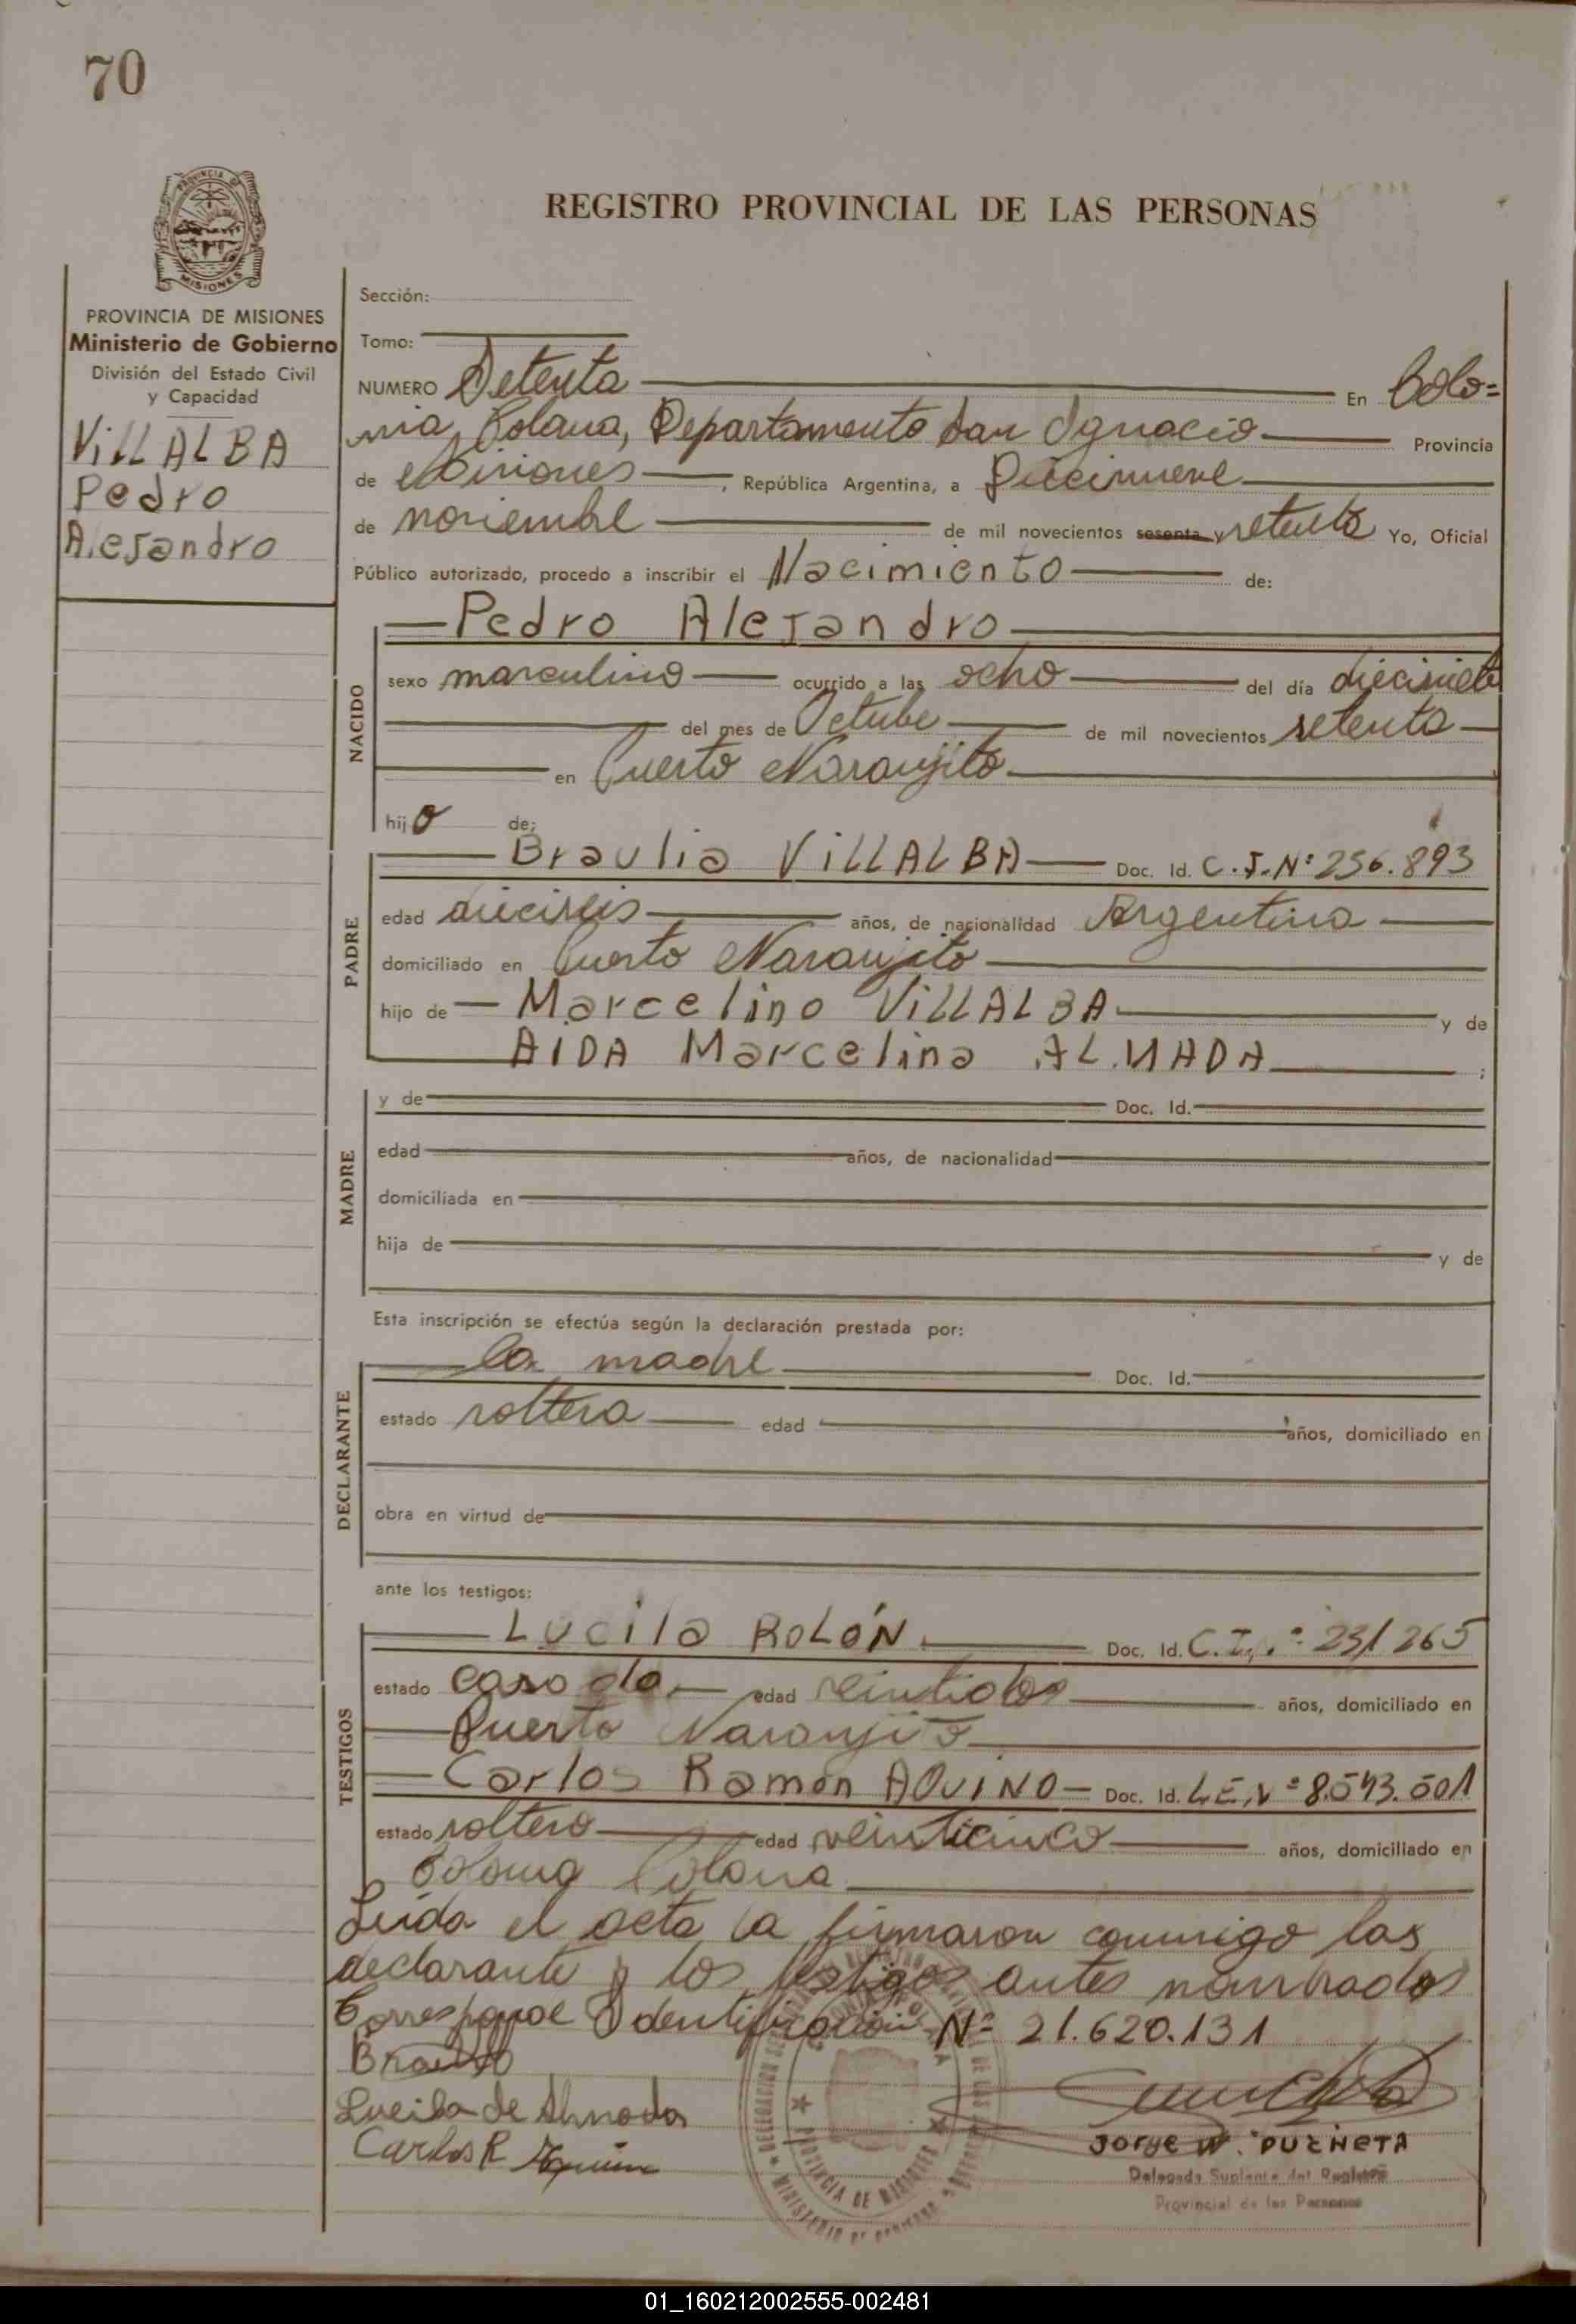 70
PROVINCIA DE
MISIONES
REGISTRO PROVINCIAL DE LAS PERSONAS
PROVINCIA DE MISIONES
Ministerio de Gobierno
División del Estado Civil
y Capacidad
VILLALBA
Pedro
Alejandro
Sección:
Tomo:
NUMERO Setenta En Colo=
nia Polana, Departamento San Ignacio Provincia
de Misiones, República Argentina, a Diecinueve
de noviembre de mil novecientos sesenta y setenta Yo, Oficial
Público autorizado, procedo a inscribir el Nacimiento de:
NACIDO
Pedro Alejandro
sexo masculino ocurrido a las ocho del día diecisiete
del mes de Octubre de mil novecientos setenta
en Puerto Naranjito
hijo de:
PADRE
Braulia VILLALBA Doc. Id. C.I.Nº 256.893
edad dieciseis años, de nacionalidad Argentina
domiciliado en Puerto Naranjito
hijo de Marcelino VILLALBA y de
AIDA Marcelina ALMADA ;
MADRE
y de Doc. Id.
edad años, de nacionalidad
domiciliada en
hija de y de
Esta inscripción se efectúa según la declaración prestada por:
DECLARANTE
la madre Doc. Id.
estado soltera edad años, domiciliado en
obra en virtud de
ante los testigos:
TESTIGOS
Lucila ROLÓN. Doc. Id. C.I. 231265
estado casada edad veintidos años, domiciliado en
Puerto Naranjito
Carlos Ramón AQUINO Doc. Id. L.E.Nº 8.543.501
estado soltero edad veinticinco años, domiciliado en
Colonia Polana
Leida el acta la firmaron conmigo las
declarante y los testigos antes nombrados
Corresponde Identificación Nº 21.620.131
Lucila de Almada
Carlos R
JORGE W. DUZNETA
Delegado Suplente del Registro
Provincial de las Personas
PROVINCIA DE MISIONES
MINISTERIO DE GOBIERNO
01_160212002555-002481